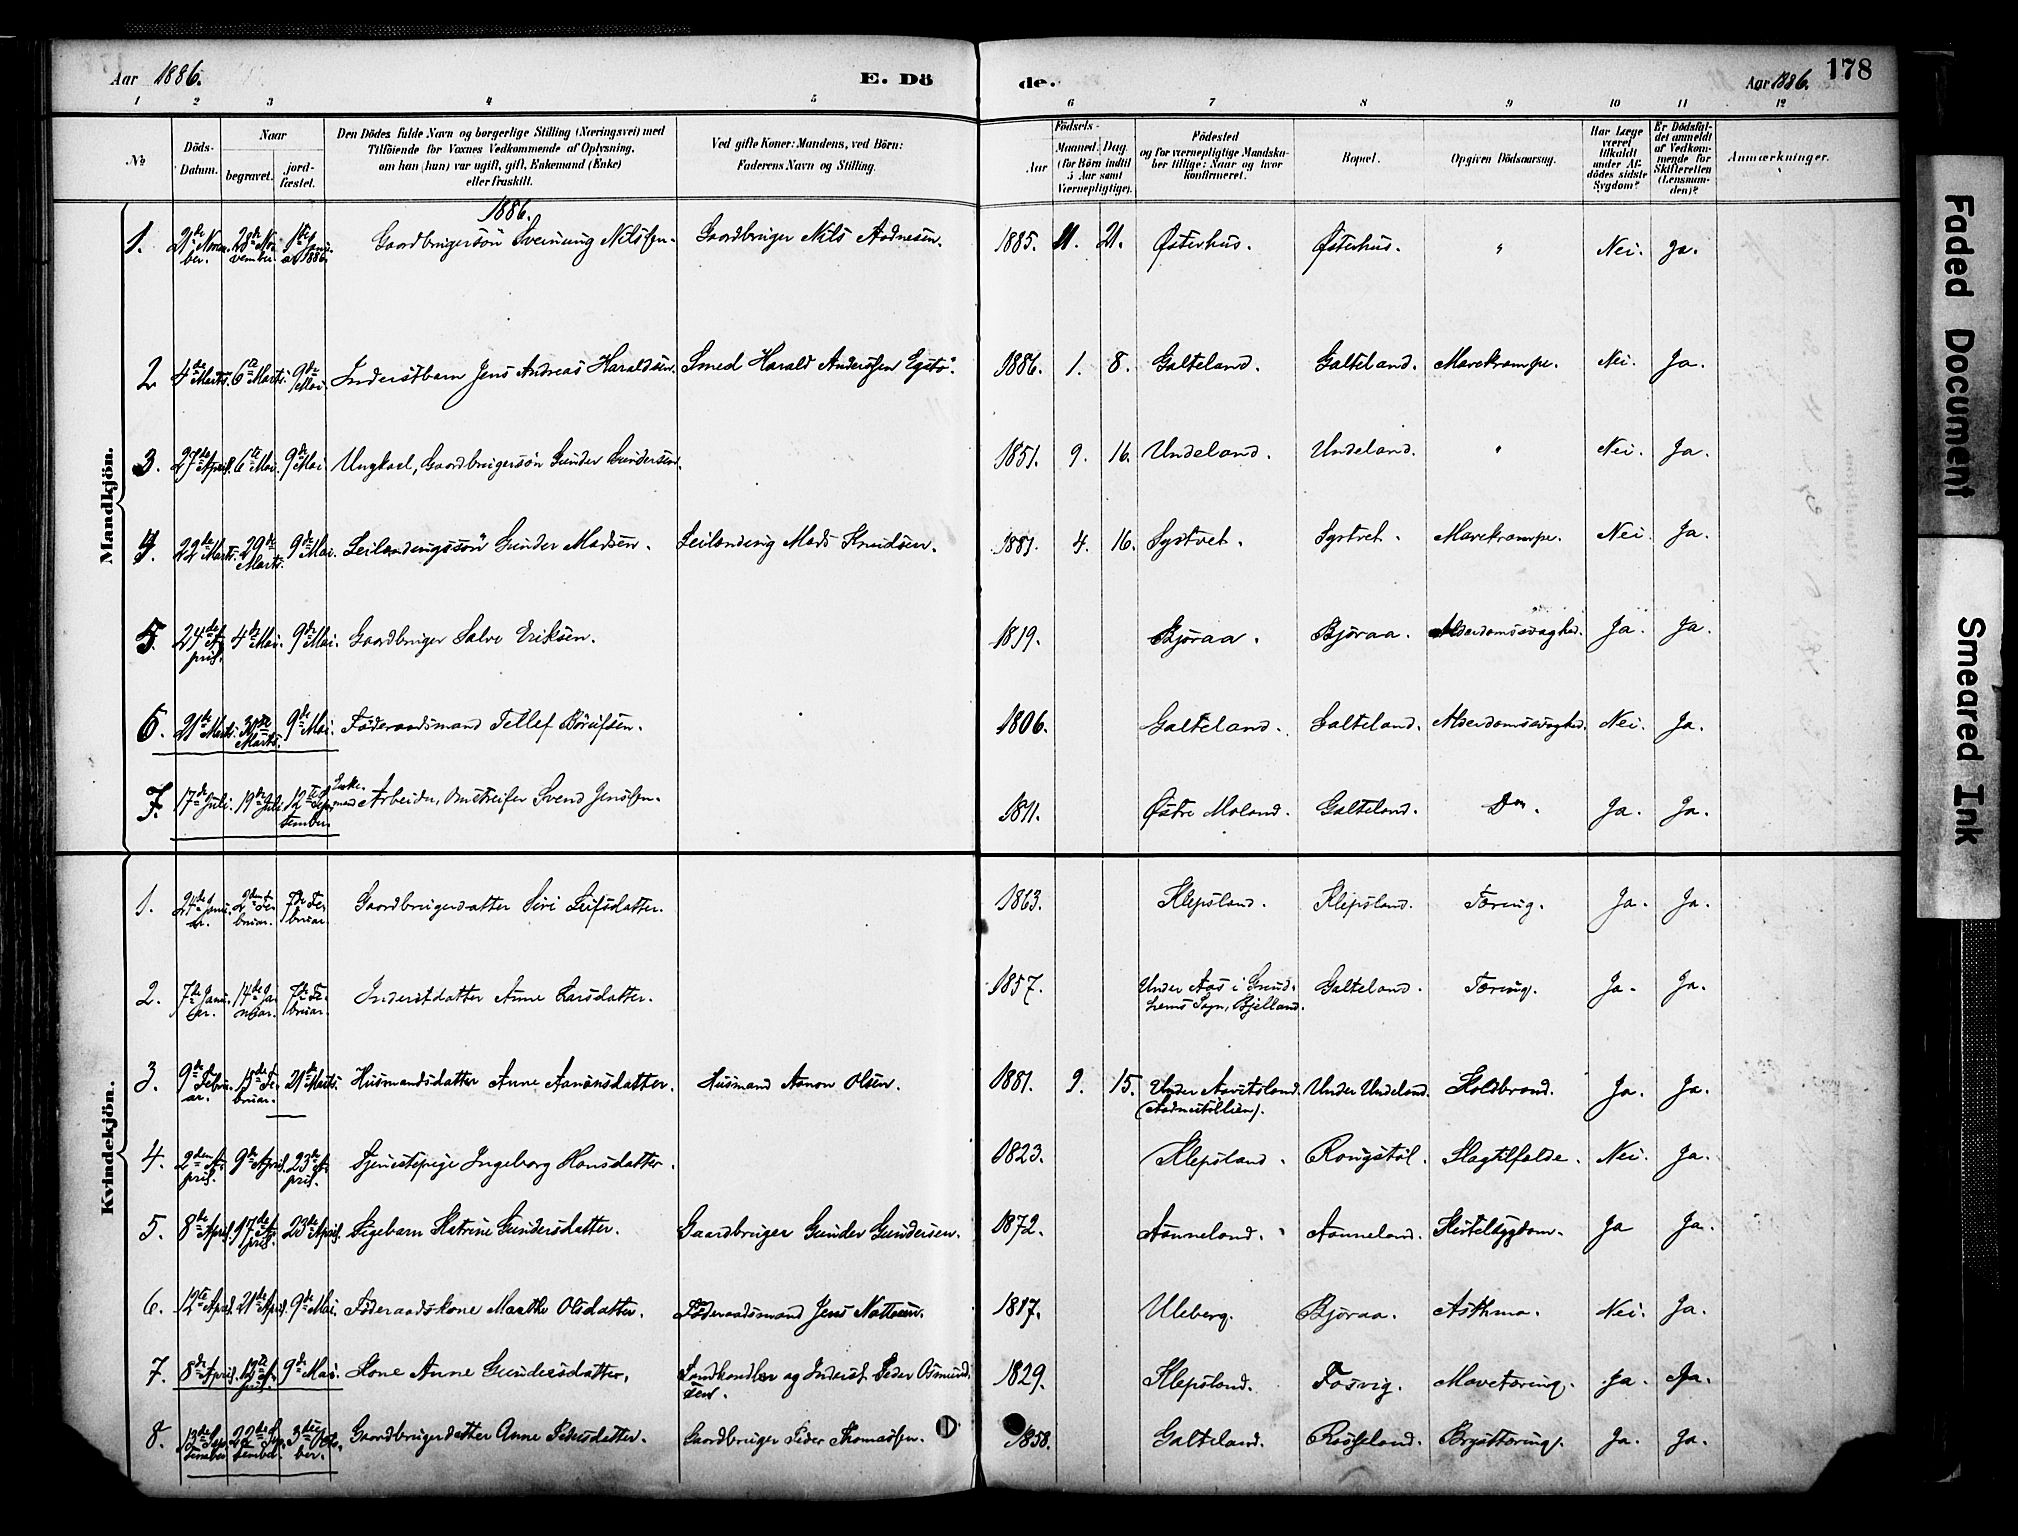 Aar 1886. E. Dö de. Aar 1886. 178
1 2 3 4 5 6 7 8 9 10 11 12
No Döds-Datum. Naar begravet. jord-fæstet. Den Dödes fulde Navn og borgerlige Stilling (Næringsvei) med Tilföiende for Voxnes Vedkommende af Oplysning, om han (hun) var ugift, gift, Enkemand (Enke) eller fraskilt. Ved gifte Koner: Mandens, ved Börn: Faderens Navn og Stilling. Födsels- Aar Maaned. Dag. (for Börn indtil 5 Aar samt Værnepligtige). Födested og for værnepligtige Mandskaber tillige: Naar og hvor konfirmeret. Bopæl. Opgiven Dödsaarsag. Har Læge været tilkaldt under Afdödes sidste Sygdom? Er Dödsfaldet anmeldt af Vedkommende for Skifteretten (Lensmanden)? Anmærkninger.
Mandkjön.
1886.
1. 21de Novem-ber. 28de November. 1ste Januar 1886. Gaardbrugersön Sveinung Nilssen. Gaardbruger Nils Aadnesen. 1885. 11. 21. Østerhus. Østerhus. " Nei. Ja.
2 4de Marts. 6te Marts. 9de Mai. Inderstbarn Jens Andreas Haraldsen. Smed Harald Anderssen Egstö. 1886. 1. 8. Galteland. Galteland. Mavekrampe. Nei. Ja.
3. 27de April. 6te Mai. 9de Mai Ungkarl, Gaardbrugersön Gunder Gundersen. 1851. 9. 16. Undeland. Undeland. " Nei. Ja.
4. 22de Marts. 29de Marts. 9de Mai. Leilændingssön Gunder Madsen. Leilænding Mads Knudsen. 1881. 4. 16. Systvet. Systvet. Mavekrampe. Nei Ja.
5. 24de April. 4de Mai. 9de Mai. Gaardbruger Salve Eriksen. 1819. Björaa. Björaa. Alderdomssvaghed. Ja. Ja.
6. 21de Marts. Marts. 9de Mai. Föderaadsmand Tellef Börufsen. 1806. Galteland. Galteland. Alderdomssvaghed. Nei. Ja.
7. 17de Juli. 19de Juli. 12te September. Enkemand Arbeider, Omstreifer Svend Jenssen. 1811. Østre Moland. Galteland. Do. Ja. Ja.
Kvindekjön.
1. 24de Januar. 2den Februar. 7de Februar. Gaardbrugerdatter Siri Leifsdatter. 1863. Klepsland. Klepsland. Tæring. Ja. Ja.
2. 7de Januar. 14de Januar. 7de Februar. Inderstdatter Anne Larsdatter. 1857. Under Aas i Grindhems Sogn, Bjelland. Galteland. Tæring. Ja. Ja.
3. 9de Februar. 15de Februar. 21de Marts. Husmandsdatter Anne Aanonsdatter. Husmand Aanon Olsen. 1881. 9. 15. Under Aavitsland Under Undeland. Koldbrand. Ja. Ja.
4. 2den April. 9de April. 23de April. Tjenestepige Ingeborg Hansdatter. 1823. Klepsland. Rongstöl. Slagtilfælde. Nei. Ja.
5. 8de April. 17de April. 23de April. Pigebarn Katrine Gundersdatter. Gaardbruger Gunder Gundersen. 1872. Aanneland. Aanneland. Kirtelsygdom. Ja Ja.
6. 12te April. 21de April. 9de Mai. Föderaadskone Marthe Olsdatter. Föderaadsmand Jens Mattssen. 1817. Uleberg. Björaa. Asthma. Nei. Ja.
7. 8de April. 9de Mai. Kone Anne Gundersdatter. Landhandler og Inderst Peder Osmundsen. 1829. Klepsland. Fosvig. Mavetæring. Ja. Ja.
8. 13de September. 22de September. 3die October. Gaardbrugerdatter Anne Pedersdatter. Gaardbruger Peder Thomassen. 1858. Galteland. Rosseland. Brysttæring. Ja. Ja.
Faded Document
Smeared Ink